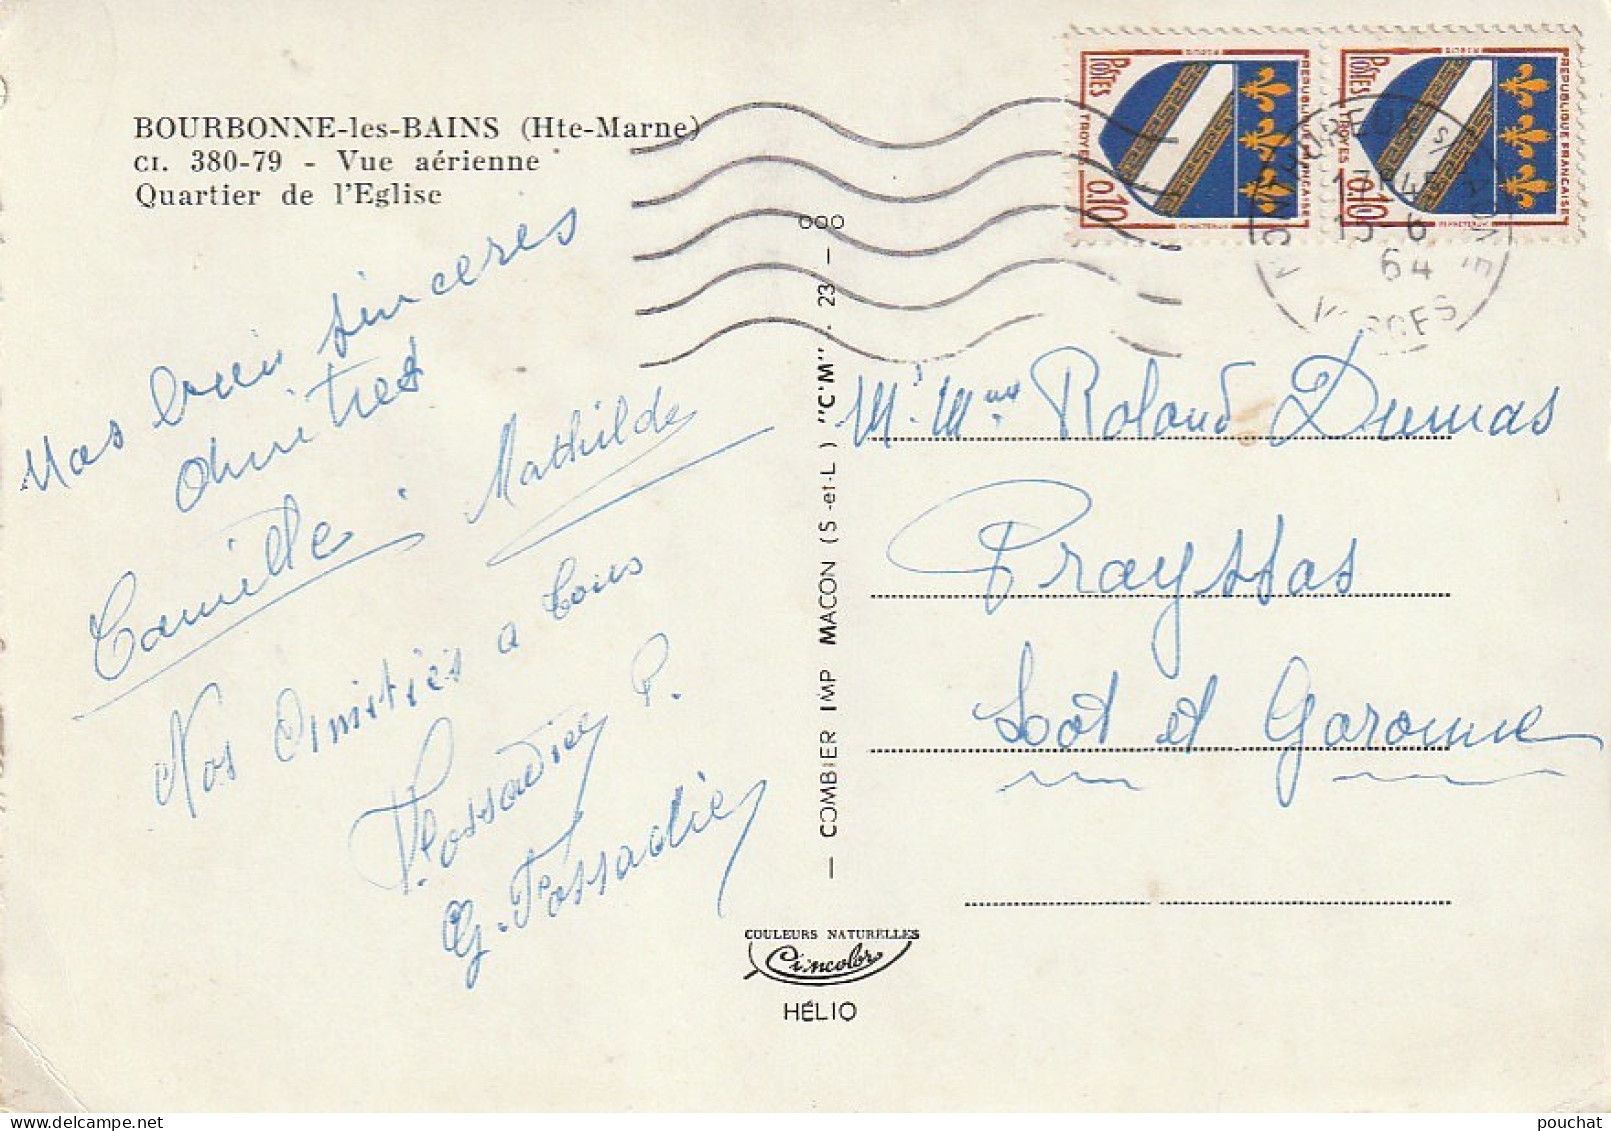 BOURBONNE-les-BAINS (Hte-Marne)
CI. 380-79 - Vue aérienne
Quartier de l'Eglise
Nos bien sincères
Amitiés
Camille. Mathilde
Nos Amitiés a tous
P.
G.
POSTES
RÉPUBLIQUE FRANÇAISE
TROYES
0,10
POSTES
RÉPUBLIQUE FRANÇAISE
TROYES
0,10
15 6
64
VOSGES
M. Mme Roland Dumas
Prayssas
Lot et Garonne
— COMBIER IMP MACON (S-et-L) "C'M" . 23 — 000
COULEURS NATURELLES
Cimcolor
HÉLIO
pouchat